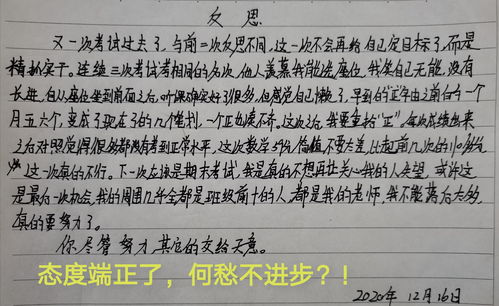 反思
又一次考试过去了,与前二次反思不同,这一次不会再给自己定目标了,而是
精扎实干。连续三次考试考相同的名次,他人羡慕我能选座位,我笑自己无能,没有
长进,自从座位坐到前面之后,听课确实好了很多,但感觉自己懒了,早到的"正"字由之前的一个
月五六个,变成了现在了的几个笔划,一个正也凑不齐。这次之后,我要重拾"正",每次成绩出来
之后对照觉得很多都没有考到正常水平,这次数学
这一次真的不行。下一次应该是期末考试,我是真的不想再让关心我的人失望,或许这
是最后一次机会,我的周围几乎全都是班级前十的人,都是我的老师,我不能落后太多,
真的要努力了。
你尽管努力,其它的交给天意。
态度端正了,何愁不进步?!
2020年12月16日